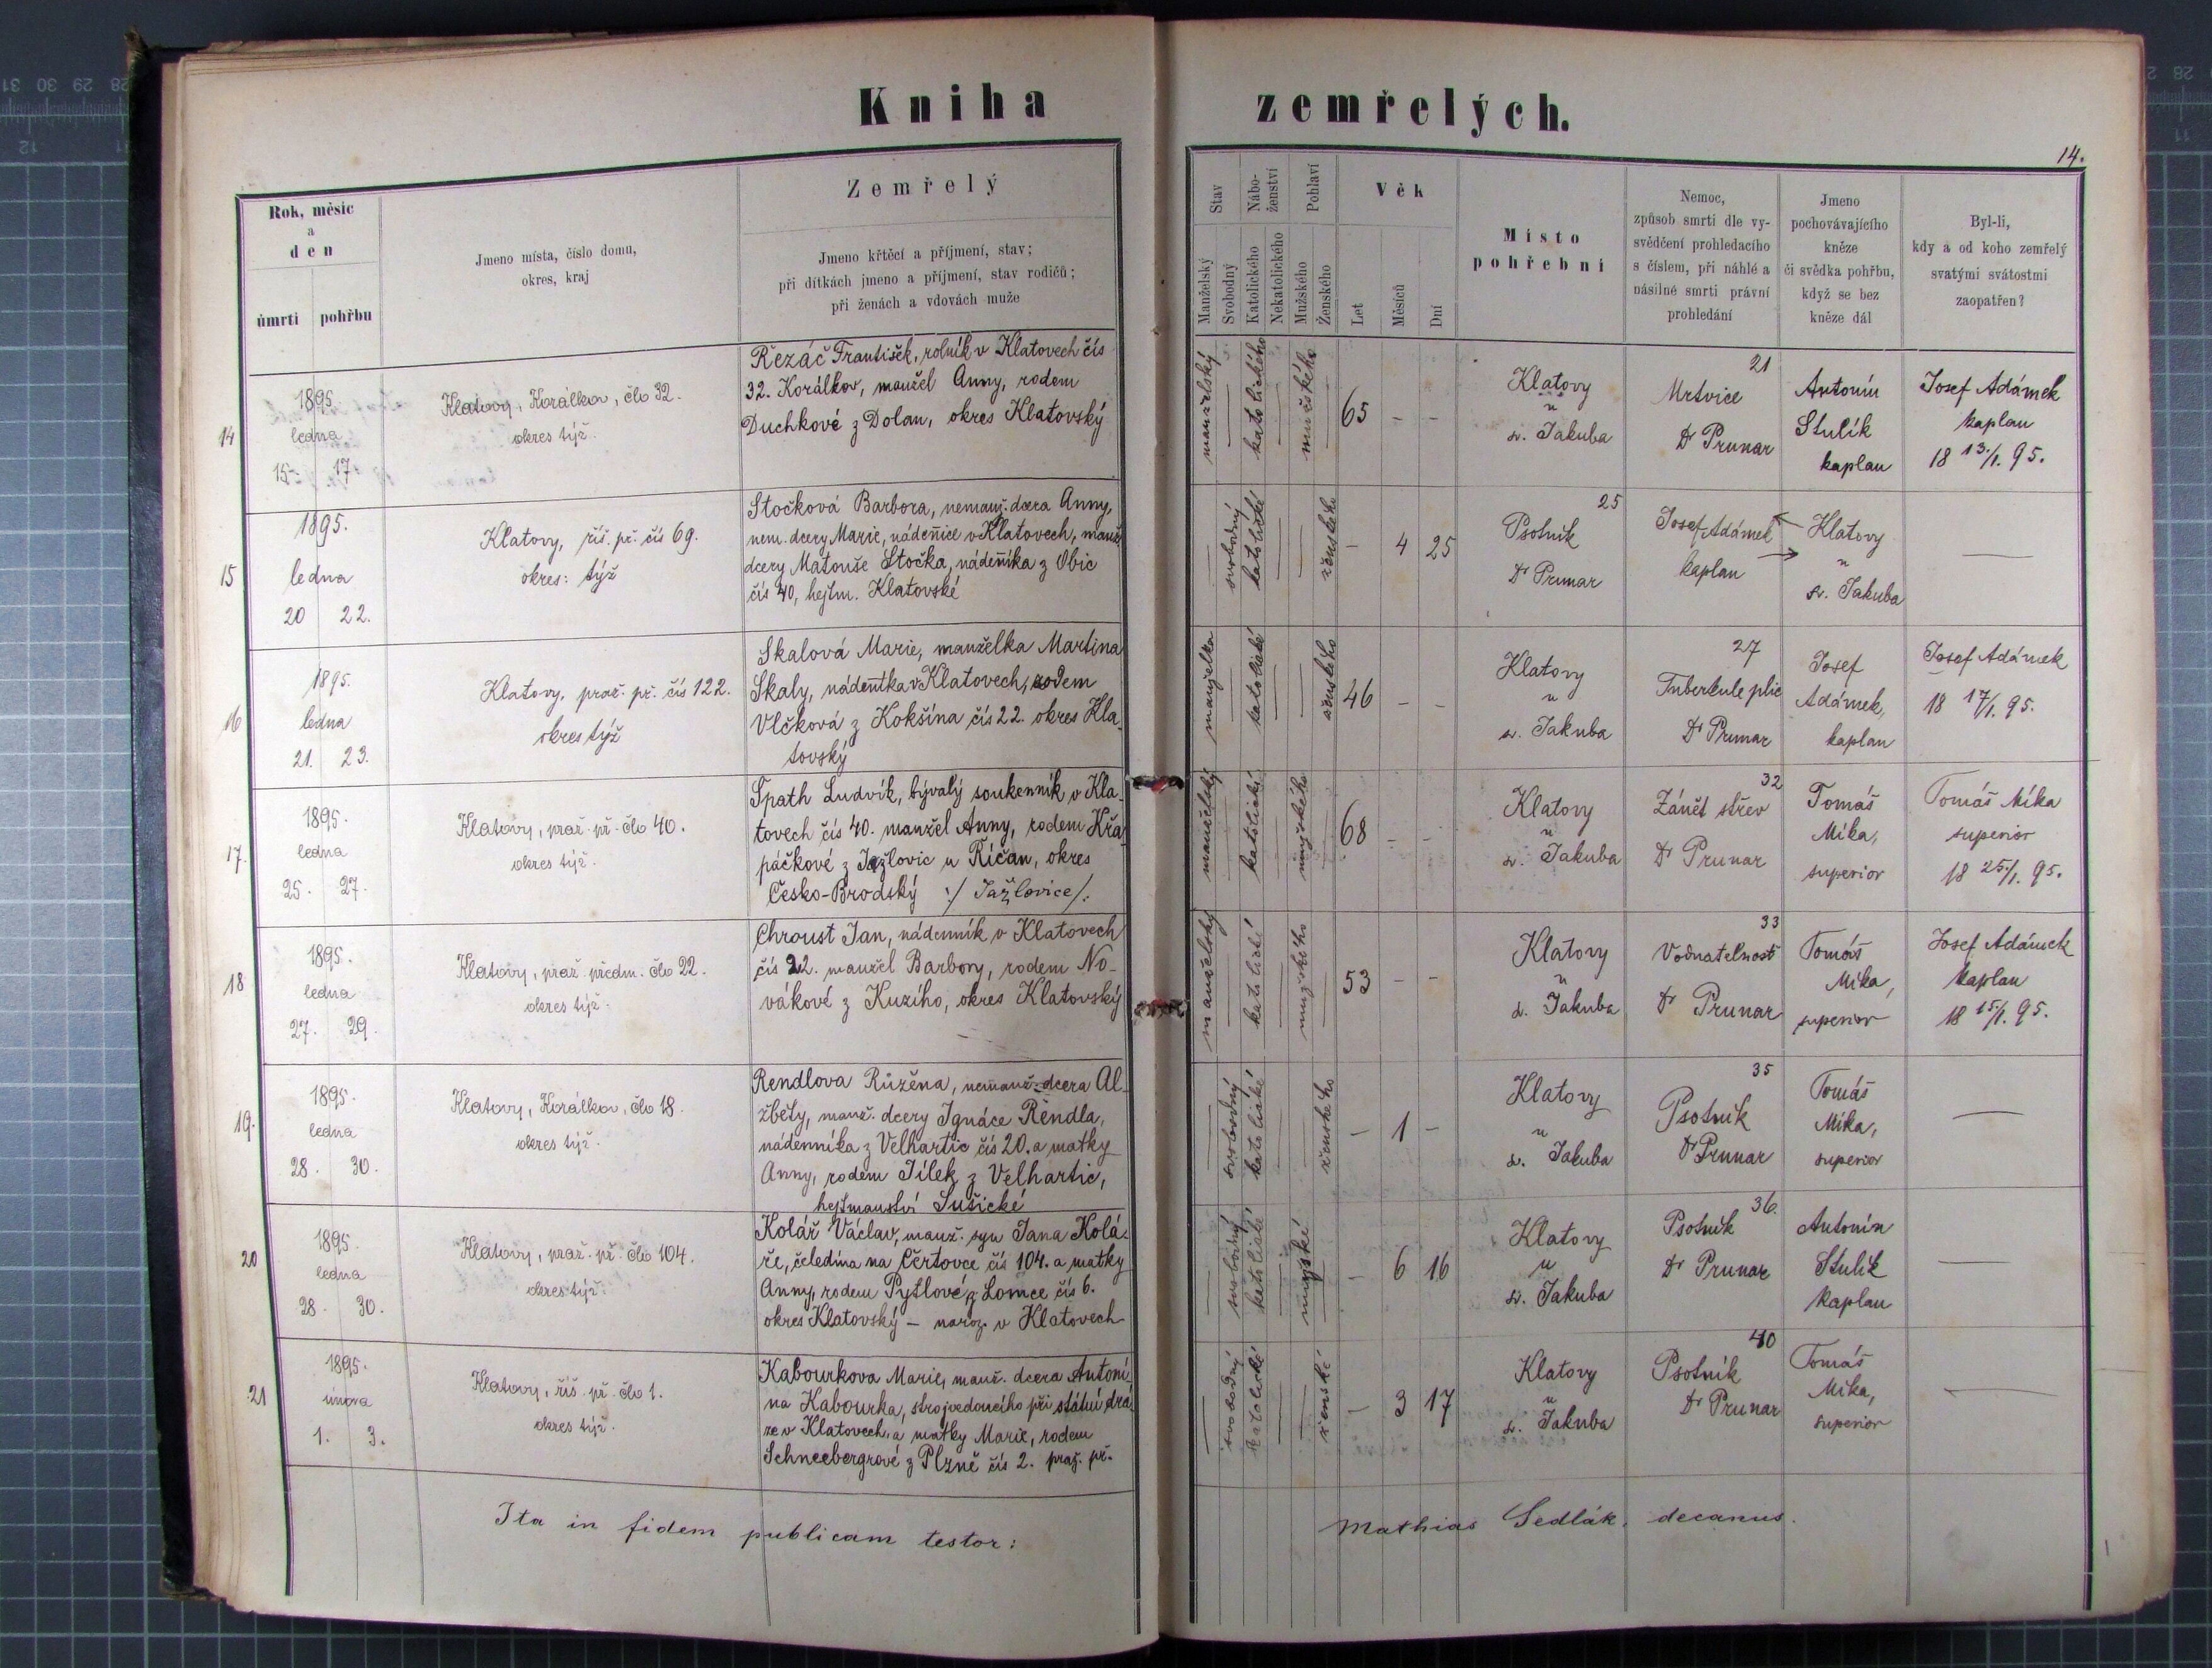 Kniha zemřelých.
14.
Rok, měsíc
a
den
úmrtí pohřbu
Jmeno místa, číslo domu,
okres, kraj
Zemřelý
Jmeno křtěcí a příjmení, stav;
při dítkách jmeno a příjmení, stav rodičů;
při ženách a vdovách muže
Stav
Manželský
Svobodný
Nábo-
ženství
Katolického
Nekatolického
Pohlaví
Mužského
Ženského
Věk
Let
Měsíců
Dní
Místo
pohřební
Nemoc,
způsob smrti dle vy-
svědčení prohledacího
s číslem, při náhlé a
násilné smrti právní
prohledání
Jmeno
pochovávajícího
kněze
či svědka pohřbu,
když se bez
kněze dál
Byl-li,
kdy a od koho zemřelý
svatými svátostmi
zaopatřen?
14
1895
ledna
15 17
Klatovy, Korálkov, člo 32.
okres týž.
Řezáč František, rolník v Klatovech čís
32. Korálkov, manžel Anny, rodem
Duchkové z Dolan, okres Klatovský
manželský
katolického
mužského
65 - -
Klatovy
u
sv. Jakuba
21
Mrtvice
Dr Prunar
Antonín
Stulík
kaplan
Josef Adámek
kaplan
18 13/1. 95.
15
1895.
ledna
20 22.
Klatovy, říš. př. čís 69.
okres: týž
Stočková Barbora, nemanž. dcera Anny,
nem. dcery Marie, nádenice v Klatovech, manž.
dcery Matouše Stočka, nádeníka z Obic
čís 40, hejtm. Klatovské
svobodný
katolické
ženského
- 4 25
Psotník
Dr Prunar
25
Josef Adámek
kaplan
Klatovy
u
sv. Jakuba
—
16
1895.
ledna
21. 23.
Klatovy, praž. př. čís 122.
okres týž
Skalová Marie, manželka Martina
Skaly, nádeníka v Klatovech, rodem
Vlčková z Kokšína čís 22. okres Kla-
tovský
manželka
katolické
ženského
46 - -
Klatovy
u
sv. Jakuba
27
Tuberkule plic
Dr Prunar
Josef
Adámek,
kaplan
Josef Adámek
18 17/1. 95.
17.
1895.
ledna
25. 27.
Klatovy, praž. př. člo 40.
okres týž.
Špath Ludvík, bývalý soukenník v Kla-
tovech čís 40. manžel Anny, rodem Křa-
páčkové z Jažlovic u Říčan, okres
Česko-Brodský :/ Jažlovice/:
manželský
katolický
mužského
68 - -
Klatovy
u
sv. Jakuba
32
Zánět střev
Dr Prunar
Tomáš
Mika,
superior
Tomáš Mika
superior
18 25/1. 95.
18
1895.
ledna
27. 29.
Klatovy, praž. předm. člo 22.
okres týž.
Chroust Jan, nádenník v Klatovech
čís 22. manžel Barbory, rodem No-
vákové z Kuzího, okres Klatovský
manželský
katolické
mužského
53 - -
Klatovy
u
sv. Jakuba
33
Vodnatelnost
Dr Prunar
Tomáš
Mika,
superior
Josef Adámek
kaplan
18 15/1. 95.
19.
1895.
ledna
28. 30.
Klatovy, Korálkov, člo 18.
okres týž.
Rendlova Růžena, nemanž. dcera Al-
žběty, manž. dcery Ignáce Rendla,
nádenníka z Velhartic čís 20. a matky
Anny, rodem Jílek z Velhartic,
hejtmanství Sušické
svobodný
katolické
ženského
- 1 -
Klatovy
u
sv. Jakuba
35
Psotník
Dr Prunar
Tomáš
Mika,
superior
—
20
1895.
ledna
28. 30.
Klatovy, praž. př. člo 104.
okres týž.
Kolář Václav, manž. syn Jana Kolá-
ře, čeledína na Čertovce čís 104. a matky
Anny, rodem Pytlové z Lomce čís 6.
okres Klatovský - naroz. v Klatovech
svobodný
katolické
mužské
- 6 16
Klatovy
u
sv. Jakuba
36.
Psotník
Dr Prunar
Antonín
Stulík
kaplan
—
21
1895.
února
1. 3.
Klatovy, říš. př. člo 1.
okres týž.
Kabourkova Marie, manž. dcera Antoní-
na Kabourka, strojvedoucího při státní drá-
ze v Klatovech, a matky Marie, rodem
Schneebergrové z Plzně čís 2. praž. př.
svobodný
katolické
ženské
- 3 17
Klatovy
u
sv. Jakuba
40
Psotník
Dr Prunar
Tomáš
Mika,
superior
—
Ita in fidem publicam testor: Mathias Sedlák, decanus.